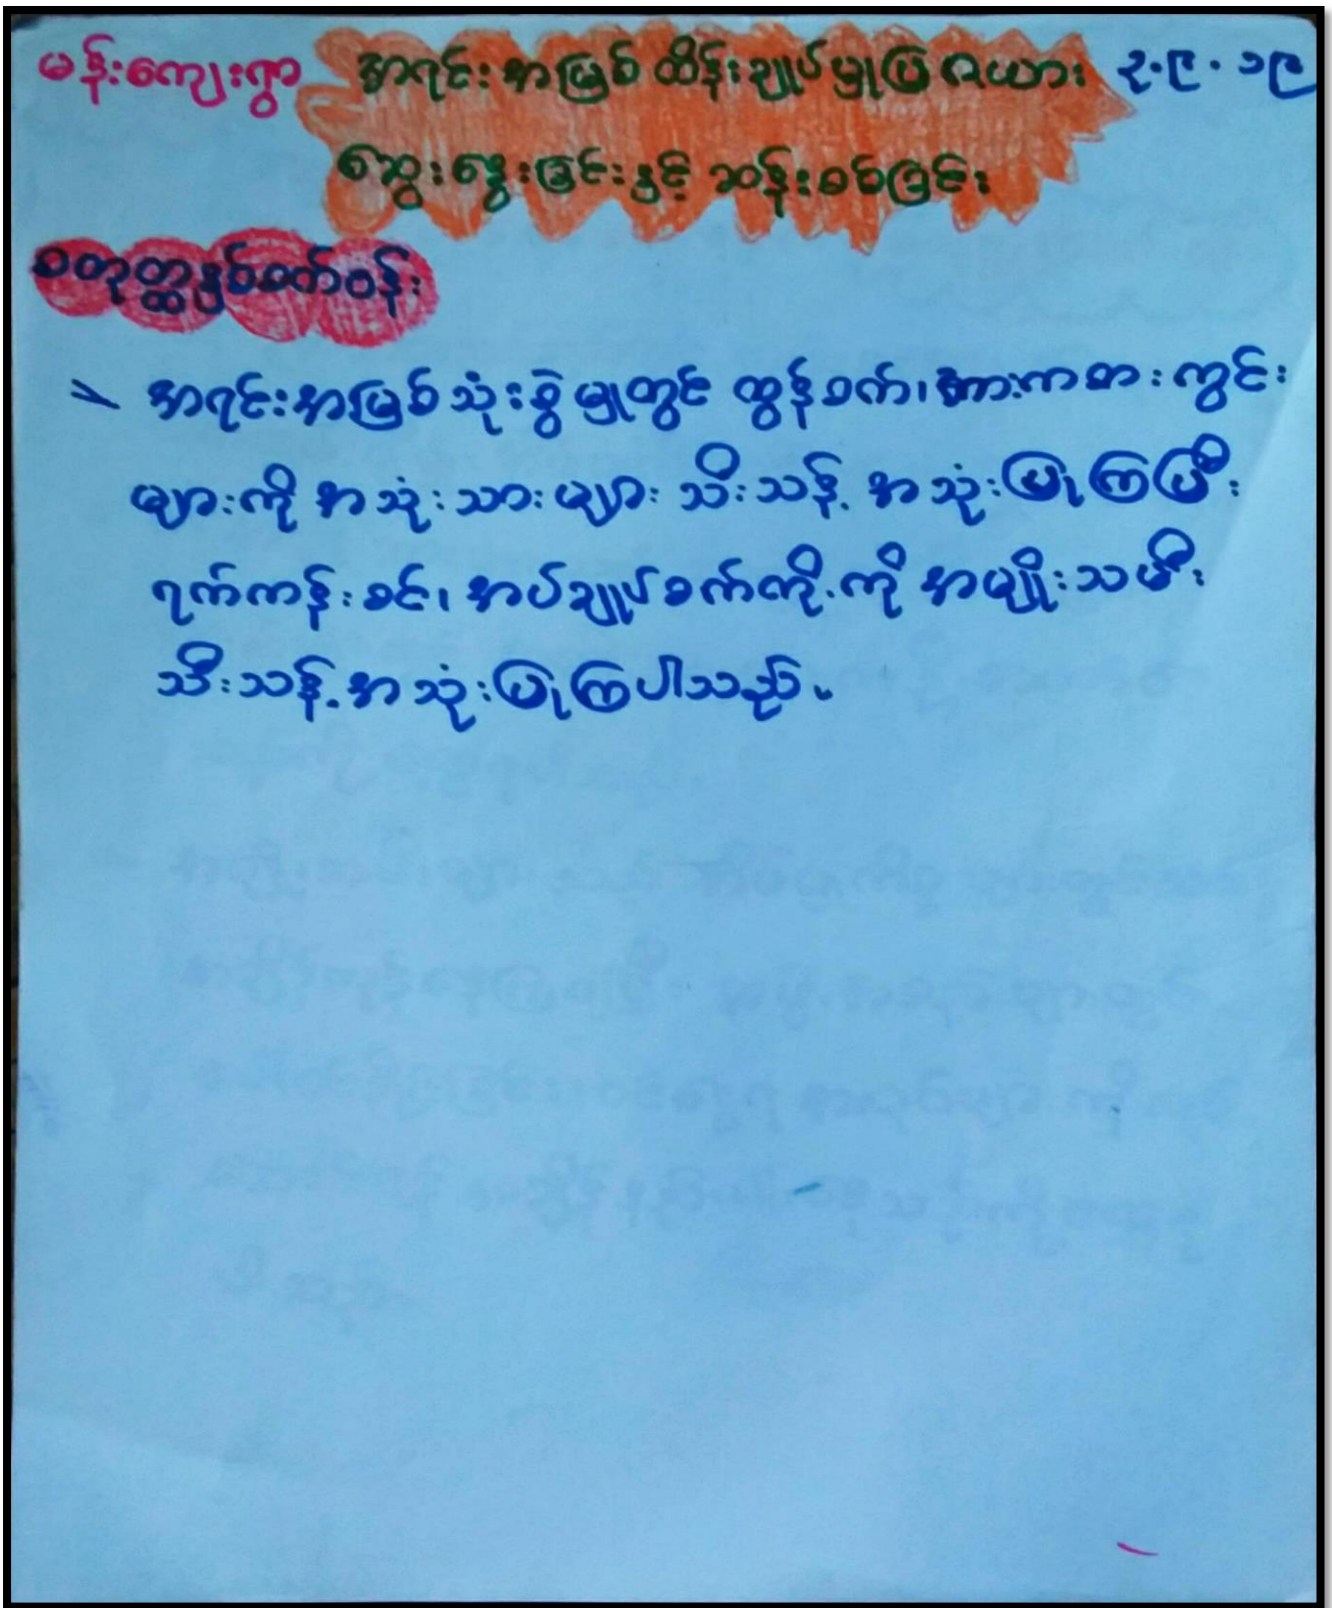 မန်းကျေးရွာ အရင်းအမြစ် ထိန်းချုပ်မှုပြ ဇယား ၃.၉.၁၉
ဆွေးနွေးခြင်းနှင့် ဆန်းစစ်ခြင်း
စတုတ္ထနှစ်စက်ဝန်း
အရင်းအမြစ် သုံးစွဲမှုတွင် ထွန်စက်၊ အားကစားကွင်း
များကို အသုံးသားများ သီးသန့် အသုံးပြုကြပြီး
ရက်ကန်းစင်၊ အပ်ချုပ်စက်တို့ကို အမျိုးသမီး
သီးသန့် အသုံးပြုကြပါသည်။